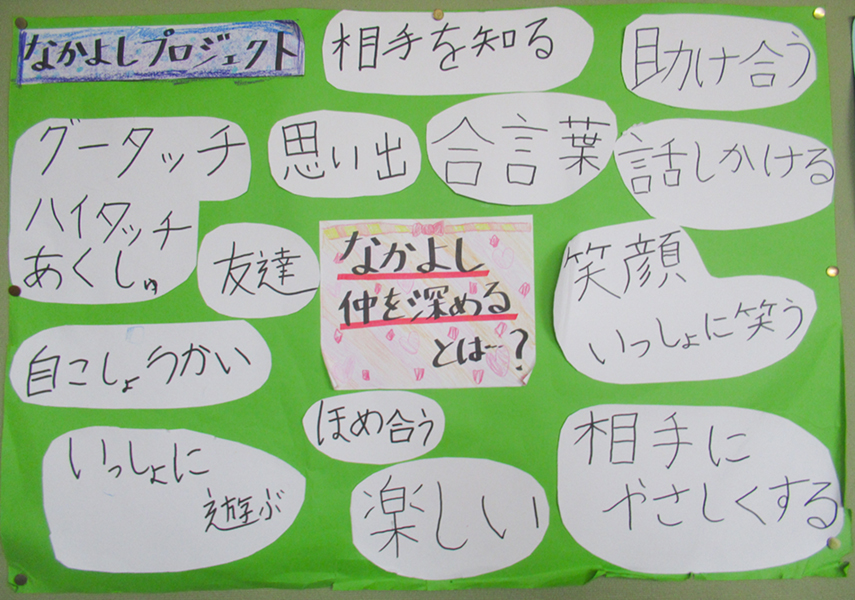 なかよしプロジェクト
相手を知る
助け合う
グータッチ
ハイタッチ
あくしゅ
思い出
合言葉
話しかける
友達
なかよし
仲を深める
とは…?
笑顔
いっしょに笑う
自こしょうかい
ほめ合う
いっしょに
遊ぶ
楽しい
相手に
やさしくする